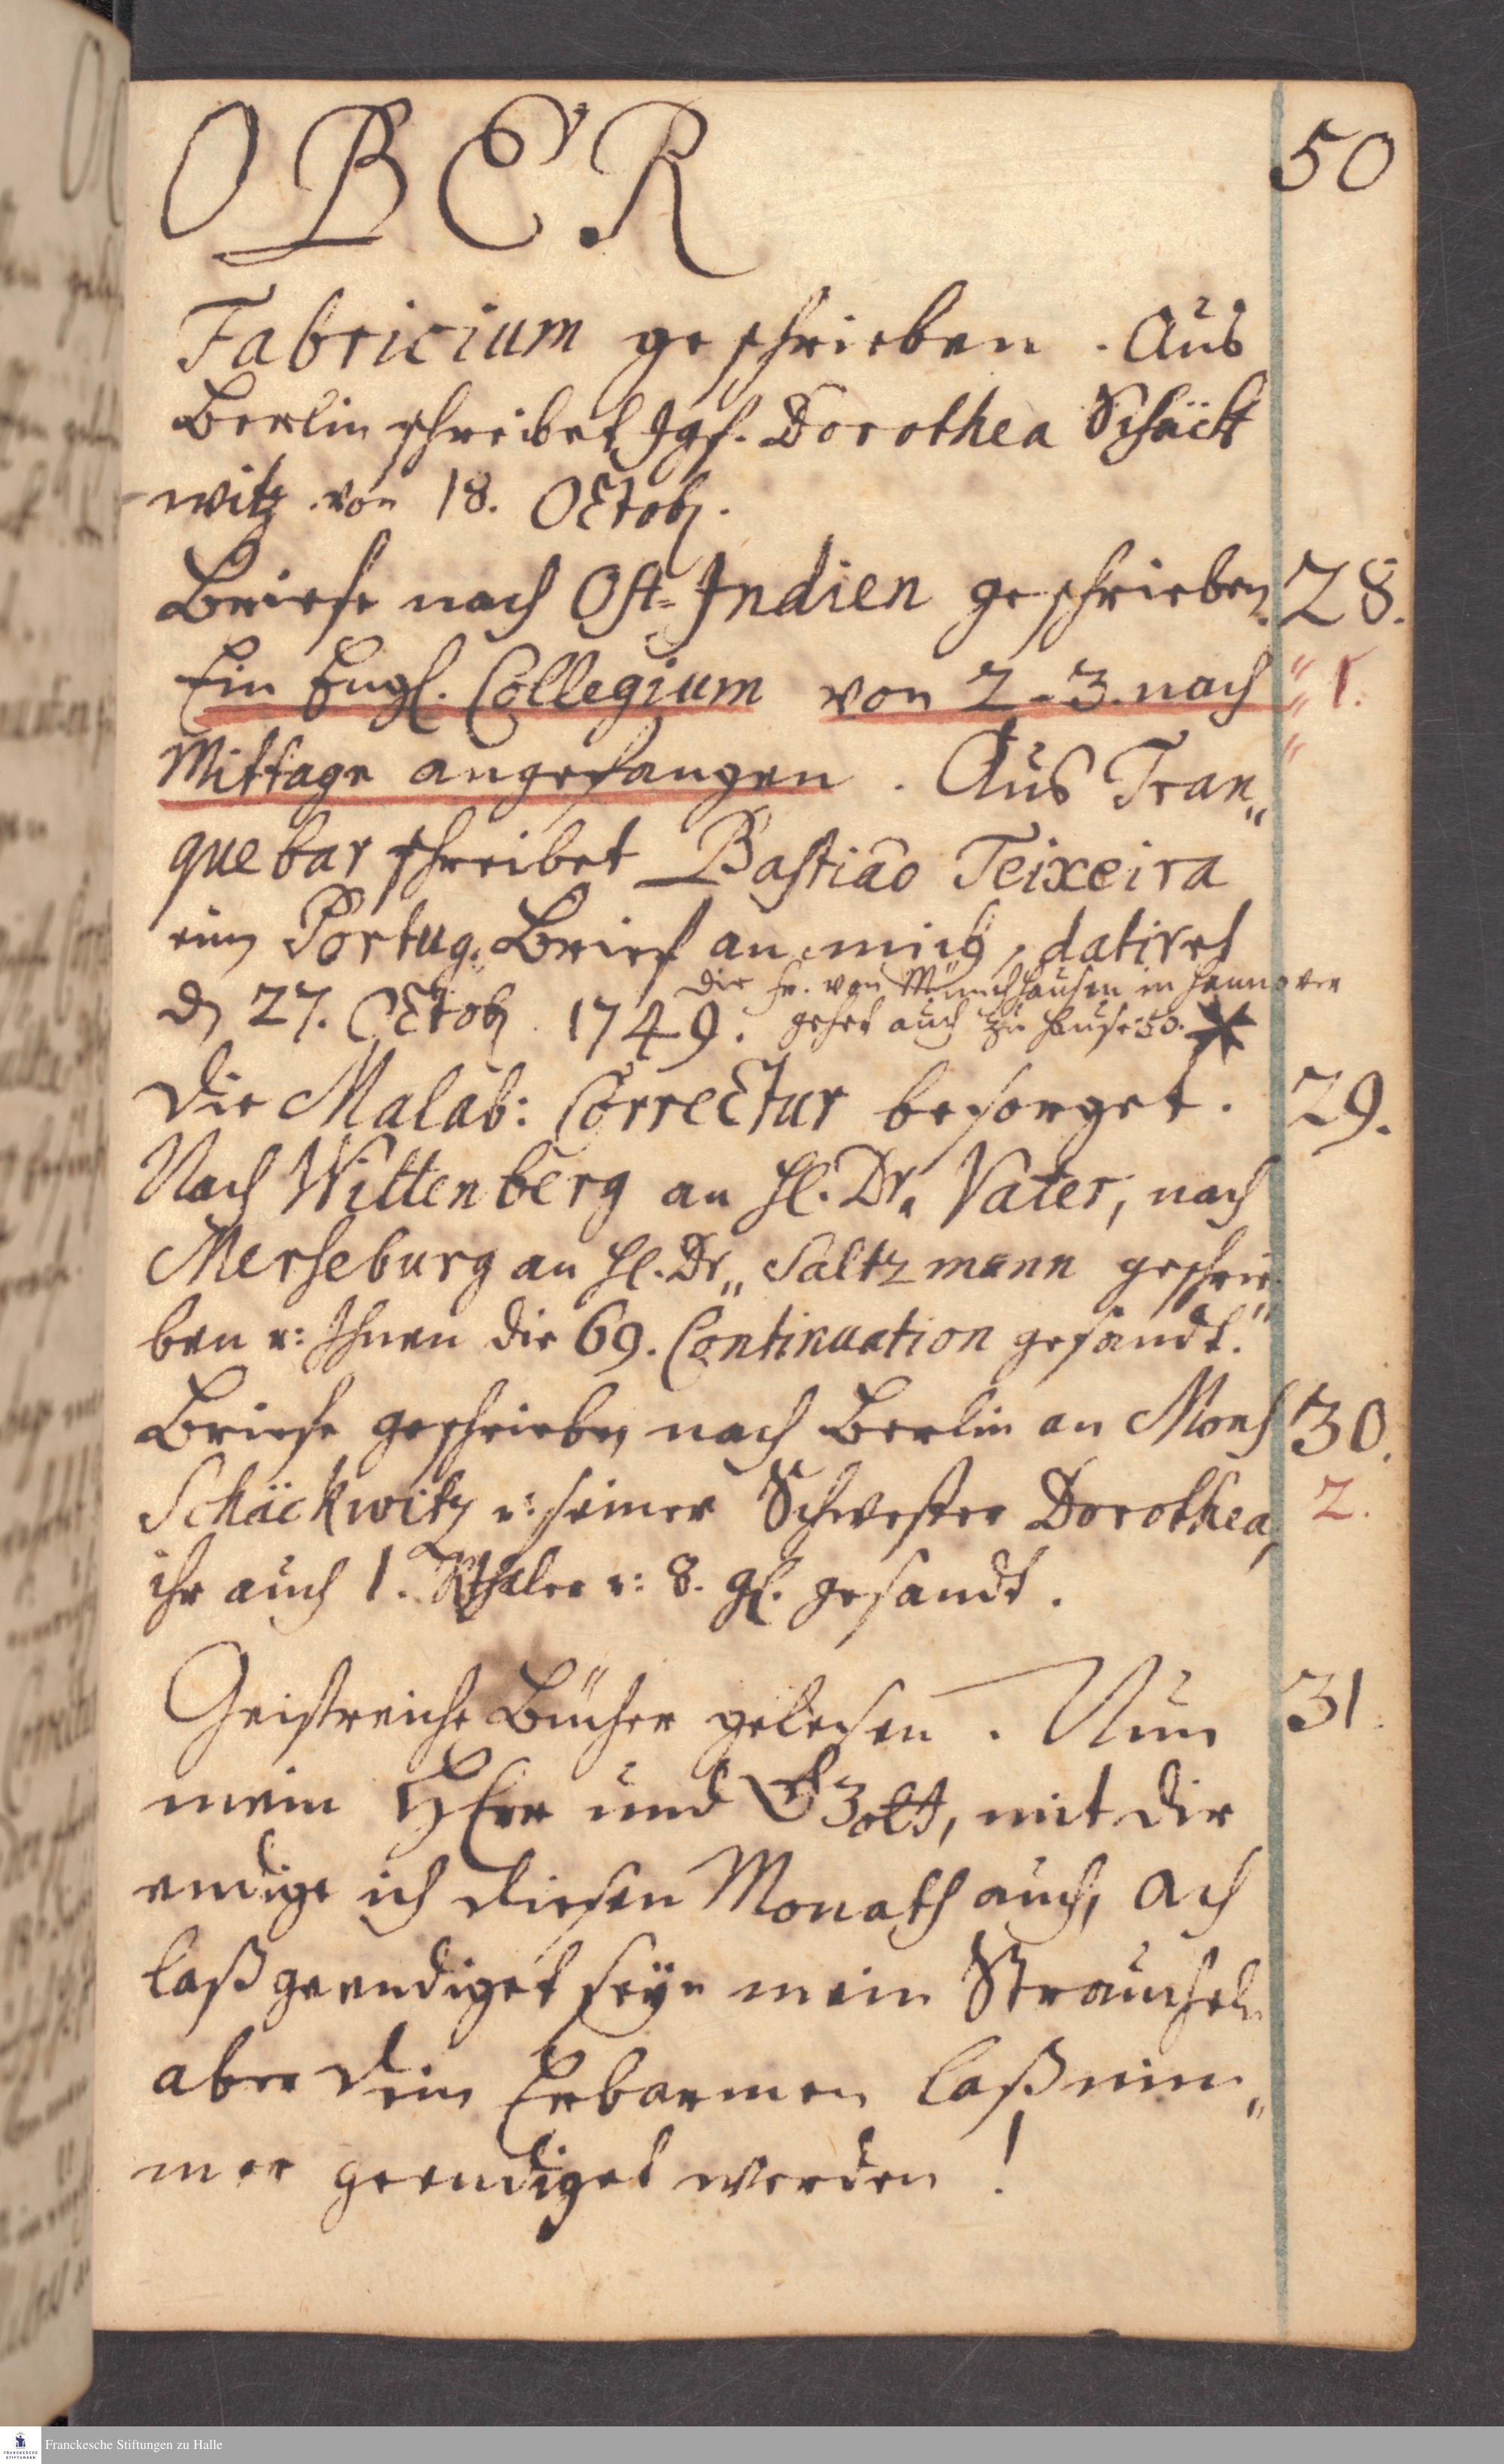 OBER 50
Fabricium geschrieben. Aus
Berlin schreibet Jgf. Dorothea Schäck
witz von 18. Octobr.
Briefe nach Ost-Indien geschrieben. 28.
Ein Engl. Collegium von 2-3. nach „ 1.
Mittage angefangen. Aus Tran„
quebar schreibet Bastiaõ Teixeira
ein Portug. Brief an mich, datiret
d. 27. Octobr. 1749. die Fr. von Münchhausen in Hannover
gehet auch zu Hause: 50. *
Die Malab: Correctur besorget. 29.
Nach Wittenberg an H. Dr. Vater, nach
Merseburg an H. Dr„ Saltzmann geschrie„
ben u: Ihnen die 69. Continuation gesandt.
Briefe geschrieben nach Berlin an Mons 30.
Schäckwitz u: seiner Schwester Dorothea, 2.
ihr auch 1. Rthaler u: 8. gl. gesandt.
Geistreiche Bücher gelesen. Nun 31.
mein HErr und GOtt, mit dir
endige ich diesen Monath auch, ach
laß geendiget seyn mein Straucheln
aber dein Erbarmen laß nim„
mer geendiget werden!
Franckesche Stiftungen zu Halle
FRANCKESCHE
STIFTUNGEN